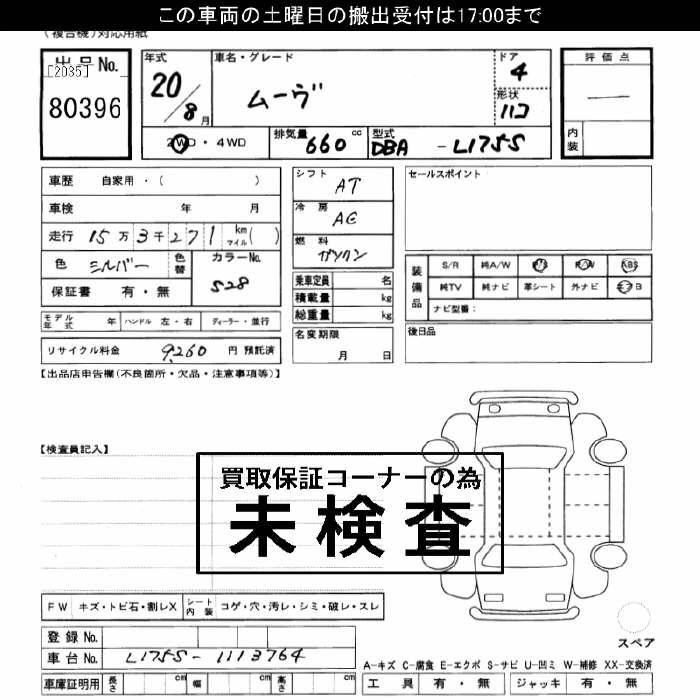 この車両の土曜日の搬出受付は17:00まで
(複合機)対応用紙
出品No.
[2035]
80396
年式
20/8月
車名・グレード
ムーヴ
ドア
4
形状
ハコ
評価点
—
内装
2WD・4WD
排気量 660 cc
型式 DBA - L175S
車歴 自家用・( )
車検 年 月
走行 15万3千271 km マイル( )
色 シルバー 色替
カラーNo.
S28
保証書 有・無
モデル年式 年 ハンドル 左・右 ディーラー・並行
リサイクル料金 9,260 円 預託済
シフト AT
冷房 AC
燃料 ガソリン
乗車定員 名
積載量 kg
総重量 kg
名変期限
月 日
セールスポイント
装備品
S/R 純A/W P/S P/W ABS
純TV 純ナビ 革シート 外ナビ エアB
ナビ型番:
後日品
【出品店申告欄(不良箇所・欠品・注意事項等)】
【検査員記入】
買取保証コーナーの為
未検査
FW キズ・トビ石・割レX シート内装 コゲ・穴・汚レ・シミ・破レ・スレ
登録No.
車台No. L175S-1113764
車庫証明用 長さ cm 幅 cm 高さ cm
スペア
A-キズ C-腐食 E-エクボ S-サビ U-凹ミ W-補修 XX-交換済
工具 有・無 ジャッキ 有・無